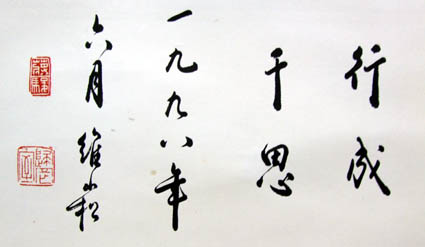 行成
于思
一九九八年
六月 维崧